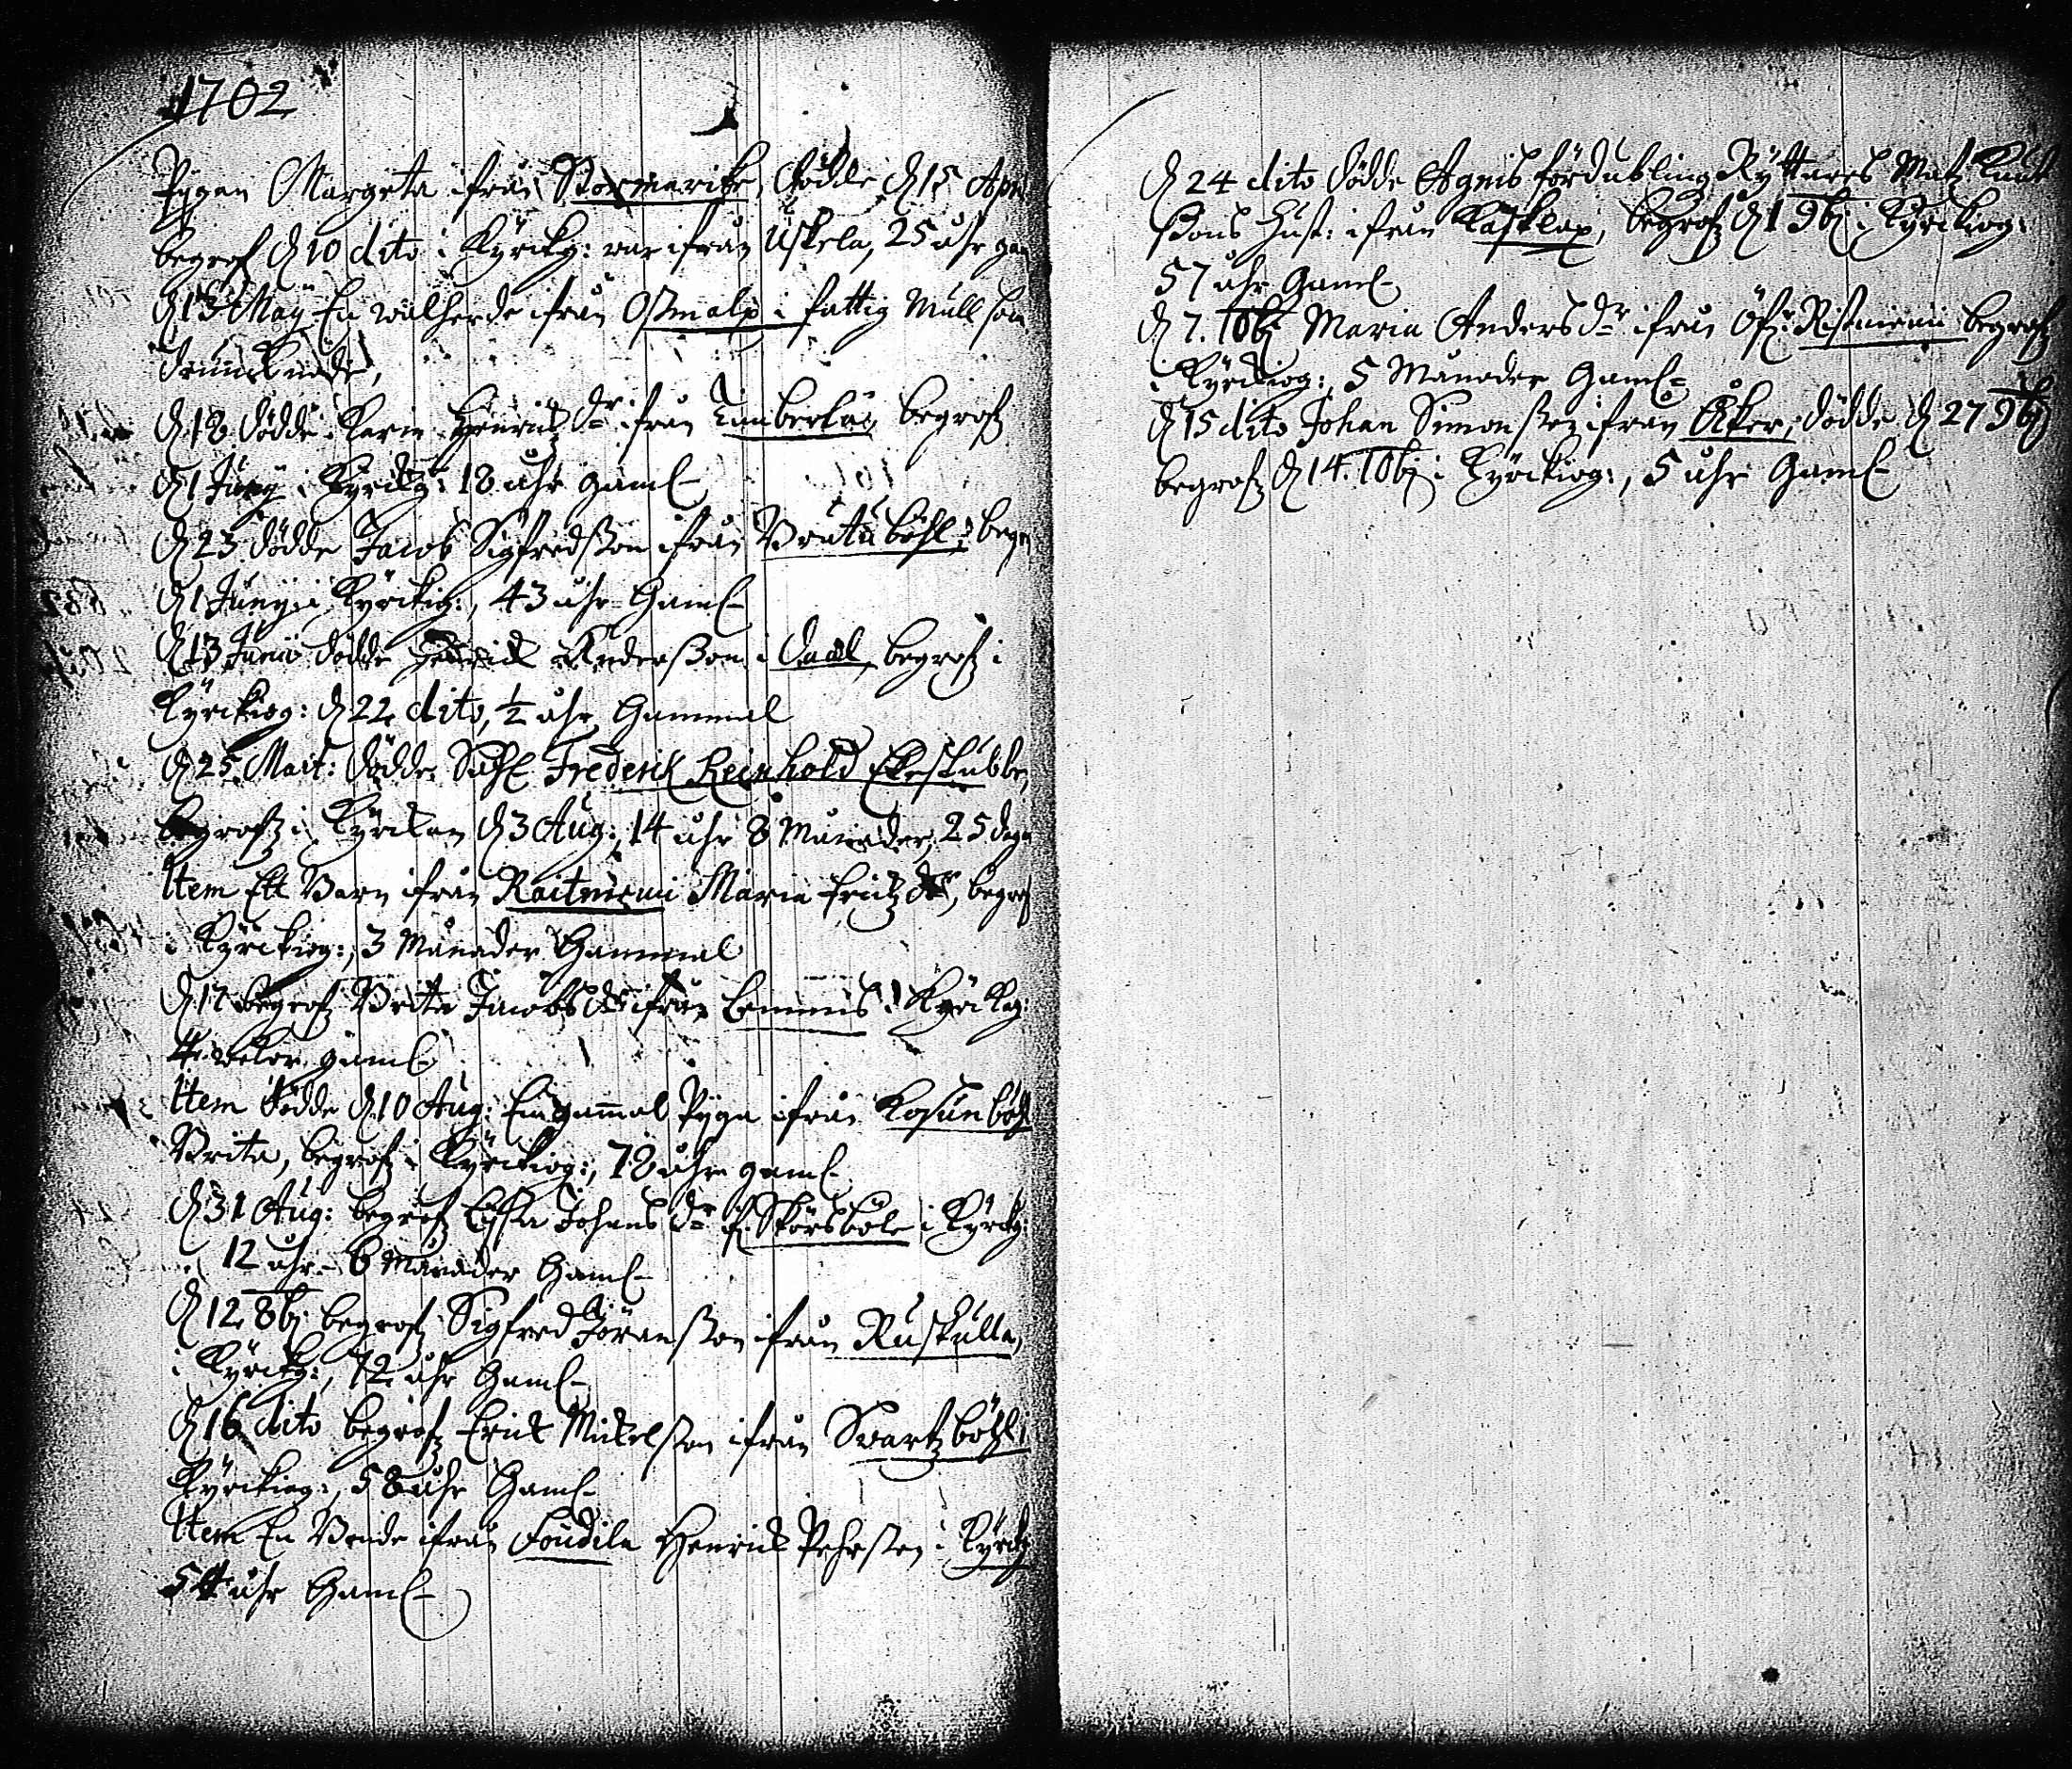 1702
Pygan Margeta ifrån Stormarike, dödde d 15 Apri
begrof d 10 dito i Kyrckg: war ifrån Uskela, 25 åhr gam
d 13 Maÿ En walherde ifrån Ostmalp i fattig Mull som
drunknade,
d 18 dödde Karin Henrichz dr ifrån Timberlax begrofz
d 1 Junÿ i Kyrckg: 18 åhr gaml
d 23 dödde Jacob Sigfredsson ifrån Brutuböhl, begr
d 1 Junÿ i Kyrckiog:, 43 åhr Gaml
d 13 Junio dödde Henrick Andersson i Daal, begrofz i
Kyrckiog: d 22 dito, ½ åhr Gammal
d 25 Mart: dödde Sahl Frederick Reinhold Ekestubbe,
begrofz i Kyrckan d 3 Aug:, 14 åhr 8 Månader, 25 daga
Item Ett Barn ifrån Raitniemi Maria Erichz dr, begrof
i Kyrckiog:, 3 Månader Gammal
d 17 begrof Britta Jacobs dr ifrån Lemnis i Kyrckg:
4 wekor gaml
Item dödde d 10 Aug: En gammal Pyga ifrån Kosunböhl
Brita, begrofz i Kyrckiog:, 78 åhr gaml
d 31 Aug: begrofz Lissa Johans dr if. Skörsböle i Kyrckg:
12 åhr 6 Månader Gaml
d 12 8bj begrofz Sigfred Jöransson ifrån Ruskulla,
i Kyrckg:, 72 åhr Gaml
d 16 dito begrofz Erick Mickelsson ifrån Svartzböhl i
Kyrckiog:, 58 åhr Gaml
Item En Bonde ifrån Loudila Henrick Pehrsson i Kyrckg
54 åhr Gaml
d 24 dito dödde Agnis fördubling Ryttares Matz Knut
ssons Hust: ifrån Kaskelax, begrofz d 1 9bj i Kyrckiog:
57 åhr Gaml
d 7. 10bj Maria Anders dr ifrån Öf: Ristniemi begrofz
i Kyrckiog:, 5 Månader Gaml
d 15 dito Johan Simonsson ifrån Åker, dödde d 27 9bj
begrofz d 14. 10bj i Kyrckiog:, 5 åhr Gaml